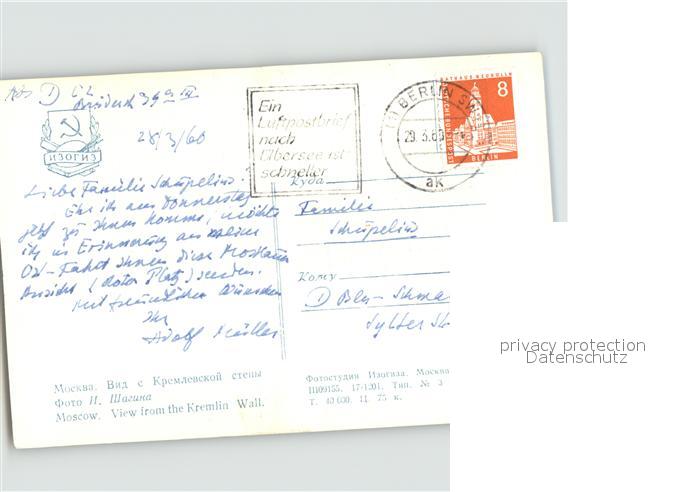 28/3/60
ИЗОГИЗ
Ein
Luftpostbrief
nach
Übersee ist
schneller
(1) BERLIN SW
29.3.60
ak
RATHAUS NEUKÖLLN
8
DEUTSCHE BUNDESPOST
BERLIN
Liebe Familie Schüpelius!
Ehe ich am Donnerstag
jetzt zu Ihnen komme, möchte
ich in Erinnerung an meine
Ost-Fahrt Ihnen diese Moskauer
Ansicht (Roter Platz) senden.
Mit freundlichen Wünschen
Ihr
Adolf Müller
Куда
Familie
Schüpelius
Кому
Bln - Schma
Sylter St
Москва. Вид с Кремлевской стены
Фото И. Шагина
Moscow. View from the Kremlin Wall.
Фотостудия Изогиза. Москва
Ш09155. 17-1201. Тип. № 3
Т. 40 000. Ц. 75 к.
privacy protection
Datenschutz